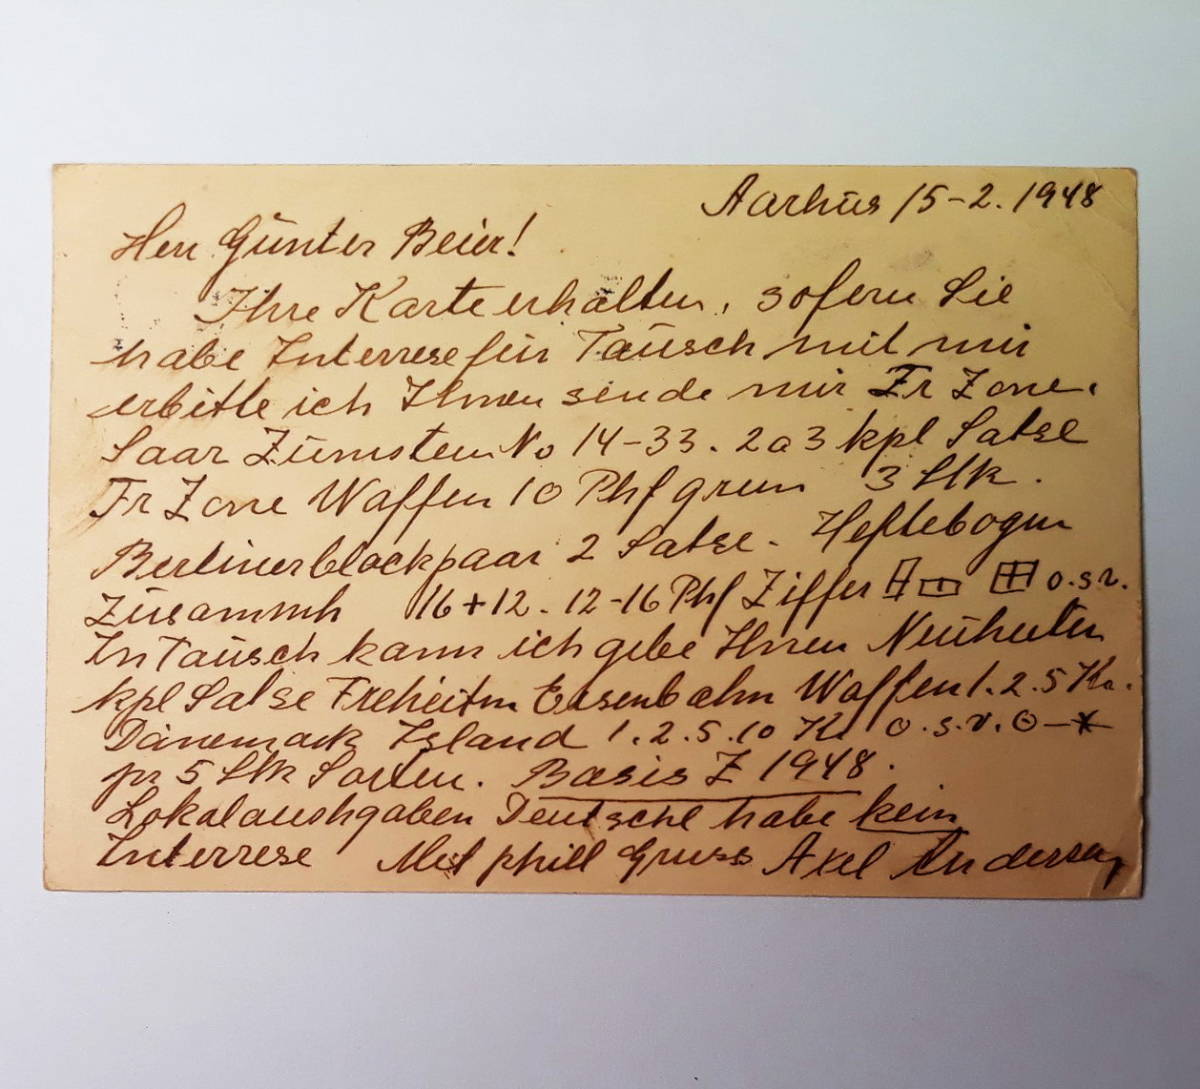 Aarhus 15-2. 1948
Herr Günter Beier!
Ihre Karte erhalten, sofern Sie
habe Interrese für Tausch mit mir
erbitte ich Ihnen sende mir Fr Zone.
Saar Zumstein No 14-33. 2 a 3 kpl Satze
Fr Zone Waffen 10 Phf grun 3 Stk.
Berlinerblockpaar 2 Satze. Heftebogen
Zusammh 16+12. 12-16 Phf Ziffer o.s.v.
In Tausch kann ich gebe Ihnen Neuheiten
kpl Satse Freheitm Eisenbahn Waffen 1. 2. 5 Kr.
Dänemark Island 1. 2. 5. 10 Kr o.s.v. ⊙-*
pr 5 Stk Sorten. Basis Z 1948.
Lokalaushgaben Deutsche habe kein
Interrese Met phill Gruss Axel Andersen